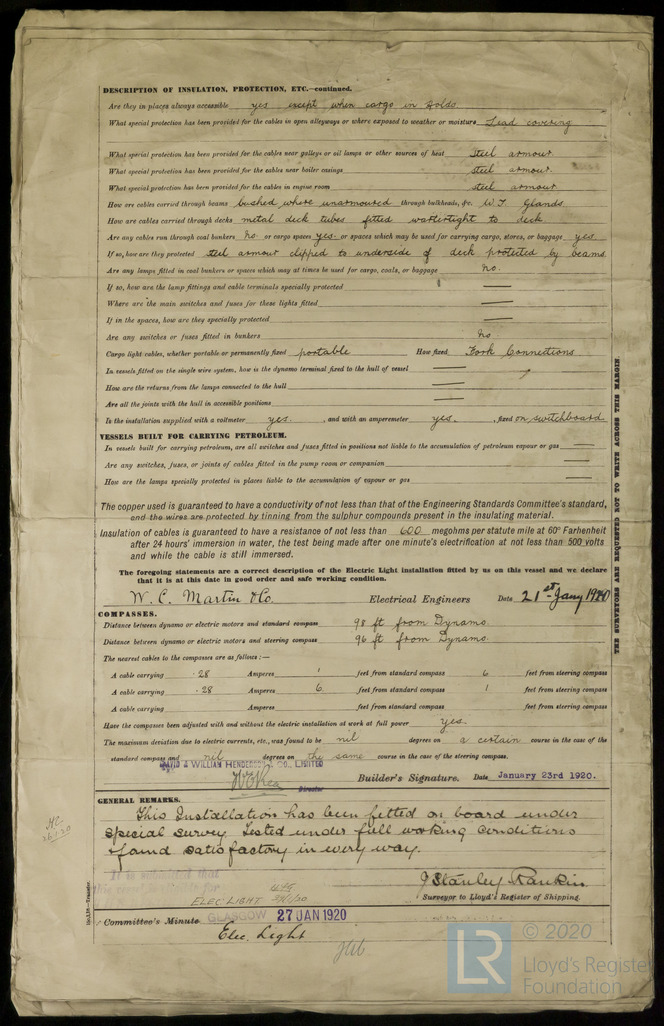 DESCRIPTION OF INSULATION, PROTECTION, ETC.—continued.
Are they in places always accessible yes except when cargo in Holds
What special protection has been provided for the cables in open alleyways or where exposed to weather or moisture Lead covering
What special protection has been provided for the cables near galleys or oil lamps or other sources of heat Steel armour
What special protection has been provided for the cables near boiler casings steel armour
What special protection has been provided for the cables in engine room steel armour
How are cables carried through beams bushed where unarmoured through bulkheads, &c. W.T. Glands
How are cables carried through decks metal deck tubes fitted watertight to deck
Are any cables run through coal bunkers no or cargo spaces yes or spaces which may be used for carrying cargo, stores, or baggage yes
If so, how are they protected steel armour clipped to underside of deck protected by beams
Are any lamps fitted in coal bunkers or spaces which may at times be used for cargo, coals, or baggage no.
If so, how are the lamp fittings and cable terminals specially protected —
Where are the main switches and fuses for these lights fitted —
If in the spaces, how are they specially protected —
Are any switches or fuses fitted in bunkers no
Cargo light cables, whether portable or permanently fixed portable How fixed Fork Connections
In vessels fitted on the single wire system, how is the dynamo terminal fixed to the hull of vessel —
How are the returns from the lamps connected to the hull —
Are all the joints with the hull in accessible positions —
Is the installation supplied with a voltmeter yes. , and with an amperemeter yes. , fixed on switchboard
VESSELS BUILT FOR CARRYING PETROLEUM.
In vessels built for carrying petroleum, are all switches and fuses fitted in positions not liable to the accumulation of petroleum vapour or gas —
Are any switches, fuses, or joints of cables fitted in the pump room or companion —
How are the lamps specially protected in places liable to the accumulation of vapour or gas —
The copper used is guaranteed to have a conductivity of not less than that of the Engineering Standards Committee's standard,
and the wires are protected by tinning from the sulphur compounds present in the insulating material.
Insulation of cables is guaranteed to have a resistance of not less than 600 megohms per statute mile at 60° Farhenheit
after 24 hours' immersion in water, the test being made after one minute's electrification at not less than 500 volts
and while the cable is still immersed.
The foregoing statements are a correct description of the Electric Light installation fitted by us on this vessel and we declare
that it is at this date in good order and safe working condition.
W. C. Martin & Co. Electrical Engineers Date 21st Jany 1920
COMPASSES.
Distance between dynamo or electric motors and standard compass 98 ft from Dynamo.
Distance between dynamo or electric motors and steering compass 96 ft from Dynamo.
The nearest cables to the compasses are as follows:—
A cable carrying .28 Amperes 1 feet from standard compass 6 feet from steering compass
A cable carrying .28 Amperes 6 feet from standard compass 1 feet from steering compass
A cable carrying Amperes feet from standard compass feet from steering compass
Have the compasses been adjusted with and without the electric installation at work at full power yes.
The maximum deviation due to electric currents, etc., was found to be nil degrees on a certain course in the case of the
standard compass and nil degrees on the same course in the case of the steering compass.
DAVID & WILLIAM HENDERSON & CO., LIMITED
Director
Builder's Signature. Date January 23rd 1920.
GENERAL REMARKS.
This Installation has been fitted on board under
special survey. Tested under full working conditions
& found satisfactory in every way.
J Stanley Rankin
Surveyor to Lloyd's Register of Shipping.
It is submitted that
this vessel is eligible for
ELEC LIGHT
Committee's Minute GLASGOW 27 JAN 1920
Elec. Light
THE SURVEYORS ARE REQUESTED NOT TO WRITE ACROSS THIS MARGIN.
LR © 2020
Lloyd's Register
Foundation